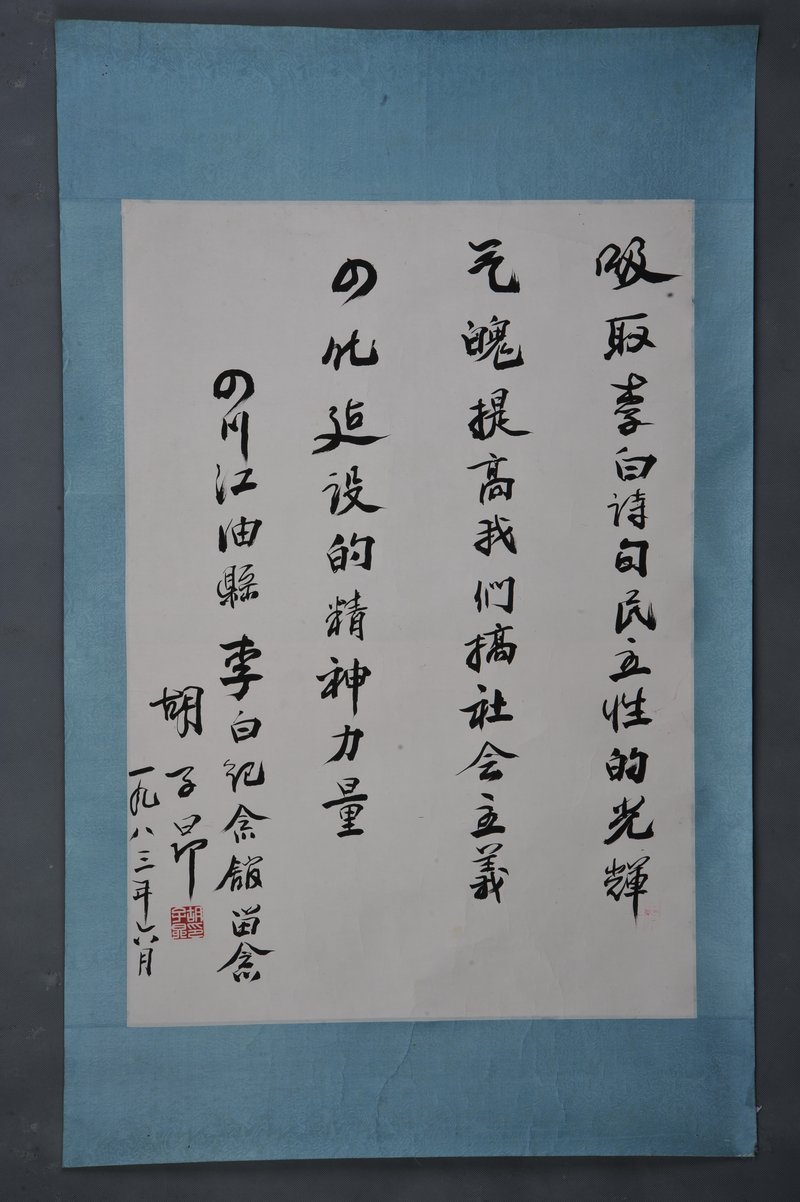 吸取李白诗句民主性的光輝
气魄提高我们搞社会主義
四化建设的精神力量
四川江油縣李白纪念館留念
胡子昂
一九八三年六月